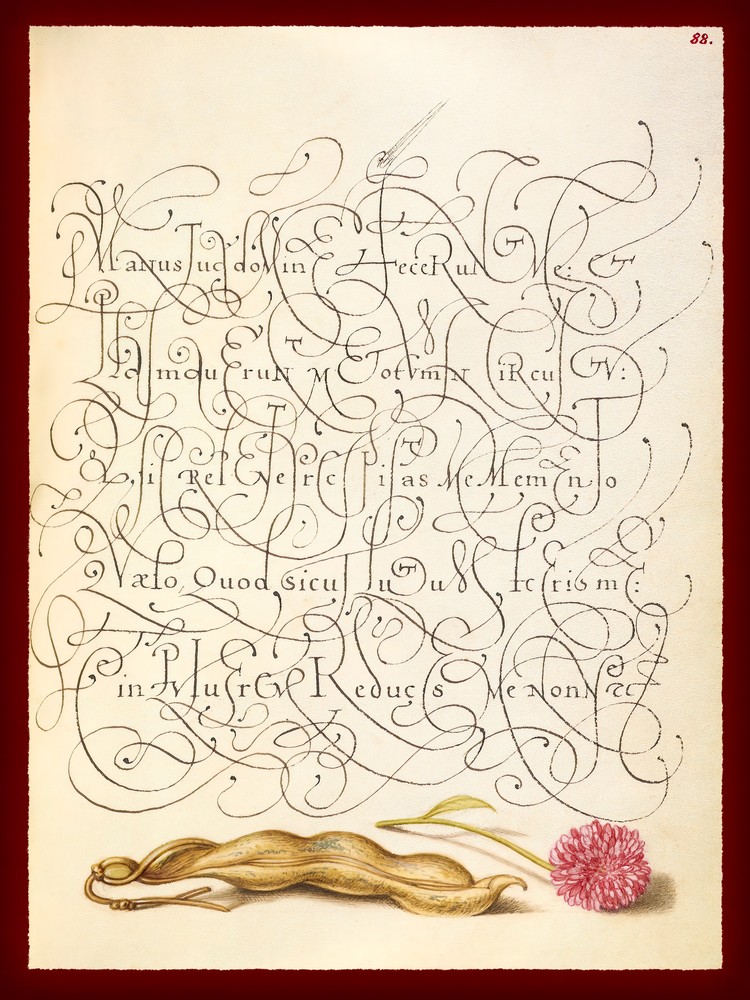 88.
Manus Tuę domine fecerunt Me: et
Plasmauerunt me Totum in circuitu:
& sic Repente precipitas Me Memento
Quæso, Quod sicut lutum feceris me:
in Puluerem Reduces Me Nonne